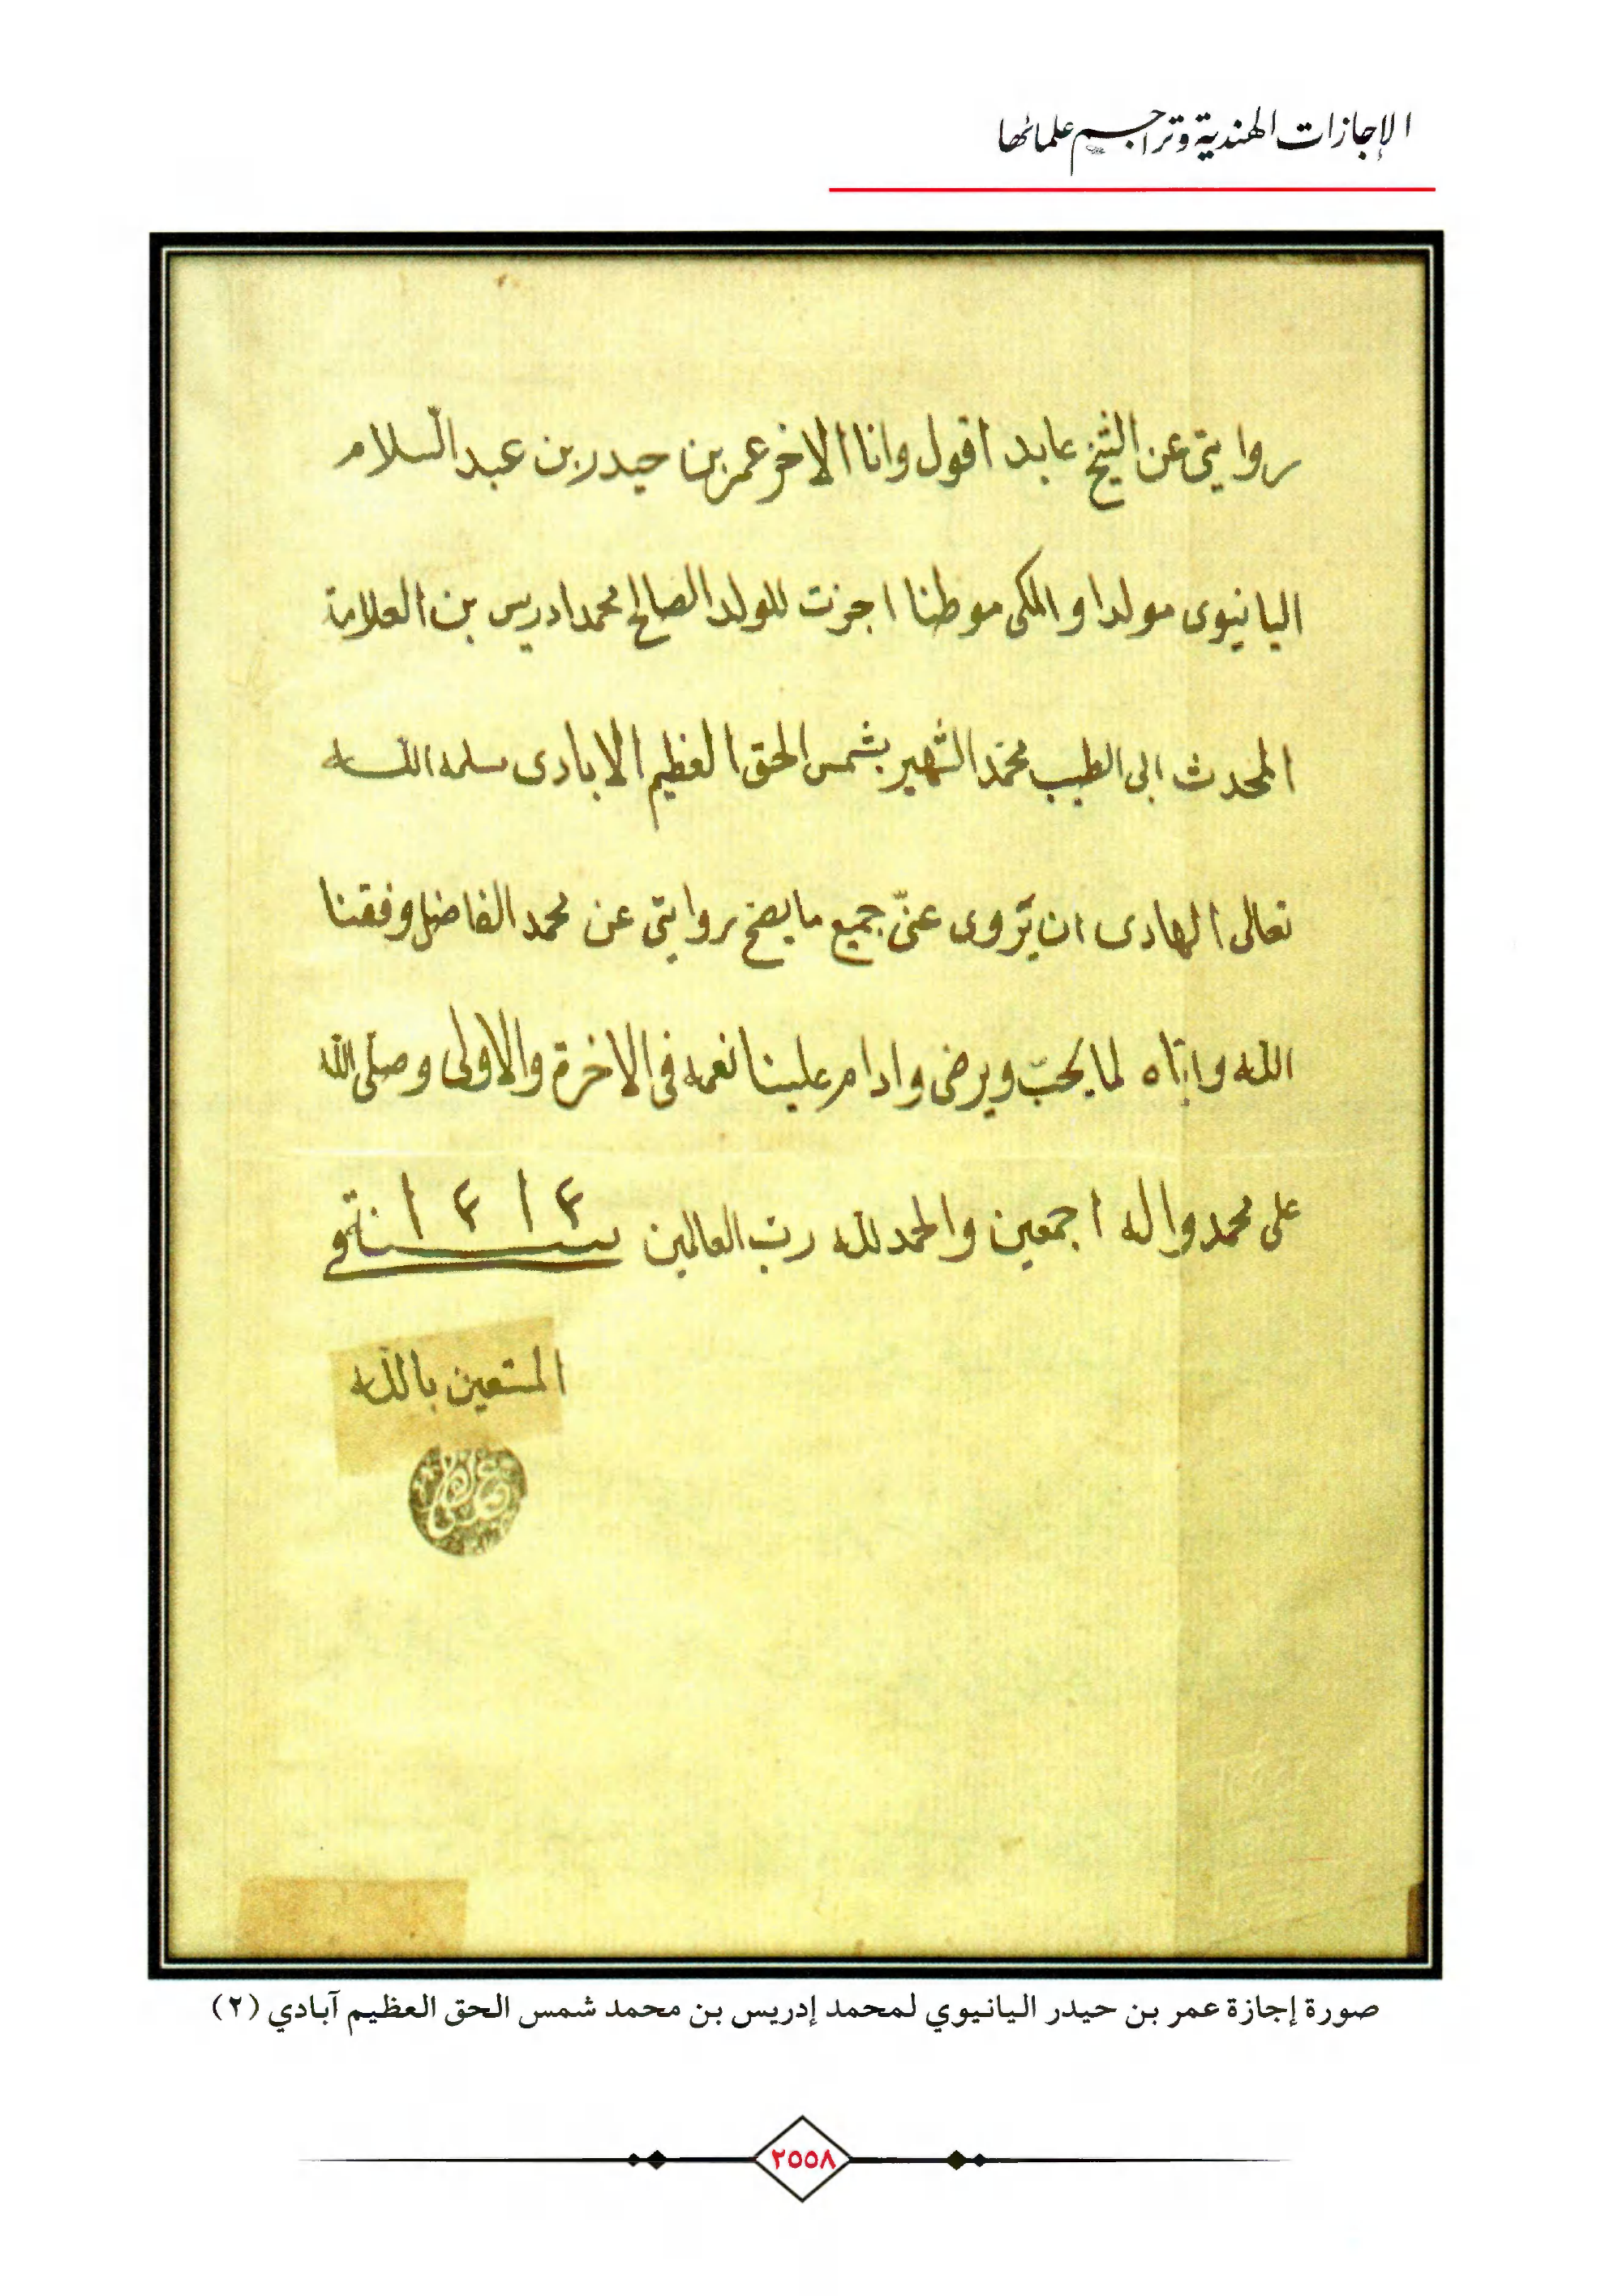 الإجازات الهندية وتراجم علمائها
روايتى عن الشيخ عابد اقول وانا الاخر عمر بن حيدر بن عبد السلام
اليانيوى مولدا والمكى موطنا اجزت للولد الصالح محمد ادريس بن العلامة
المحدث ابى الطيب محمد الشهير بشمس الحق العظيم الابادى سلمه الله
تعالى الهادى ان يروى عنّى جميع ما يصح روايتى عن محمد الفاضل وفقنا
الله واياه لما يحبّ ويرضى وادام علينا نعمه فى الاخرة والاولى وصلّى الله
على محمد واله اجمعين والحمد لله رب العالمين سنة
المستعين بالله
صورة إجازة عمر بن حيدر اليانيوي لمحمد إدريس بن محمد شمس الحق العظيم آبادي (٢)
٢٥٥٨